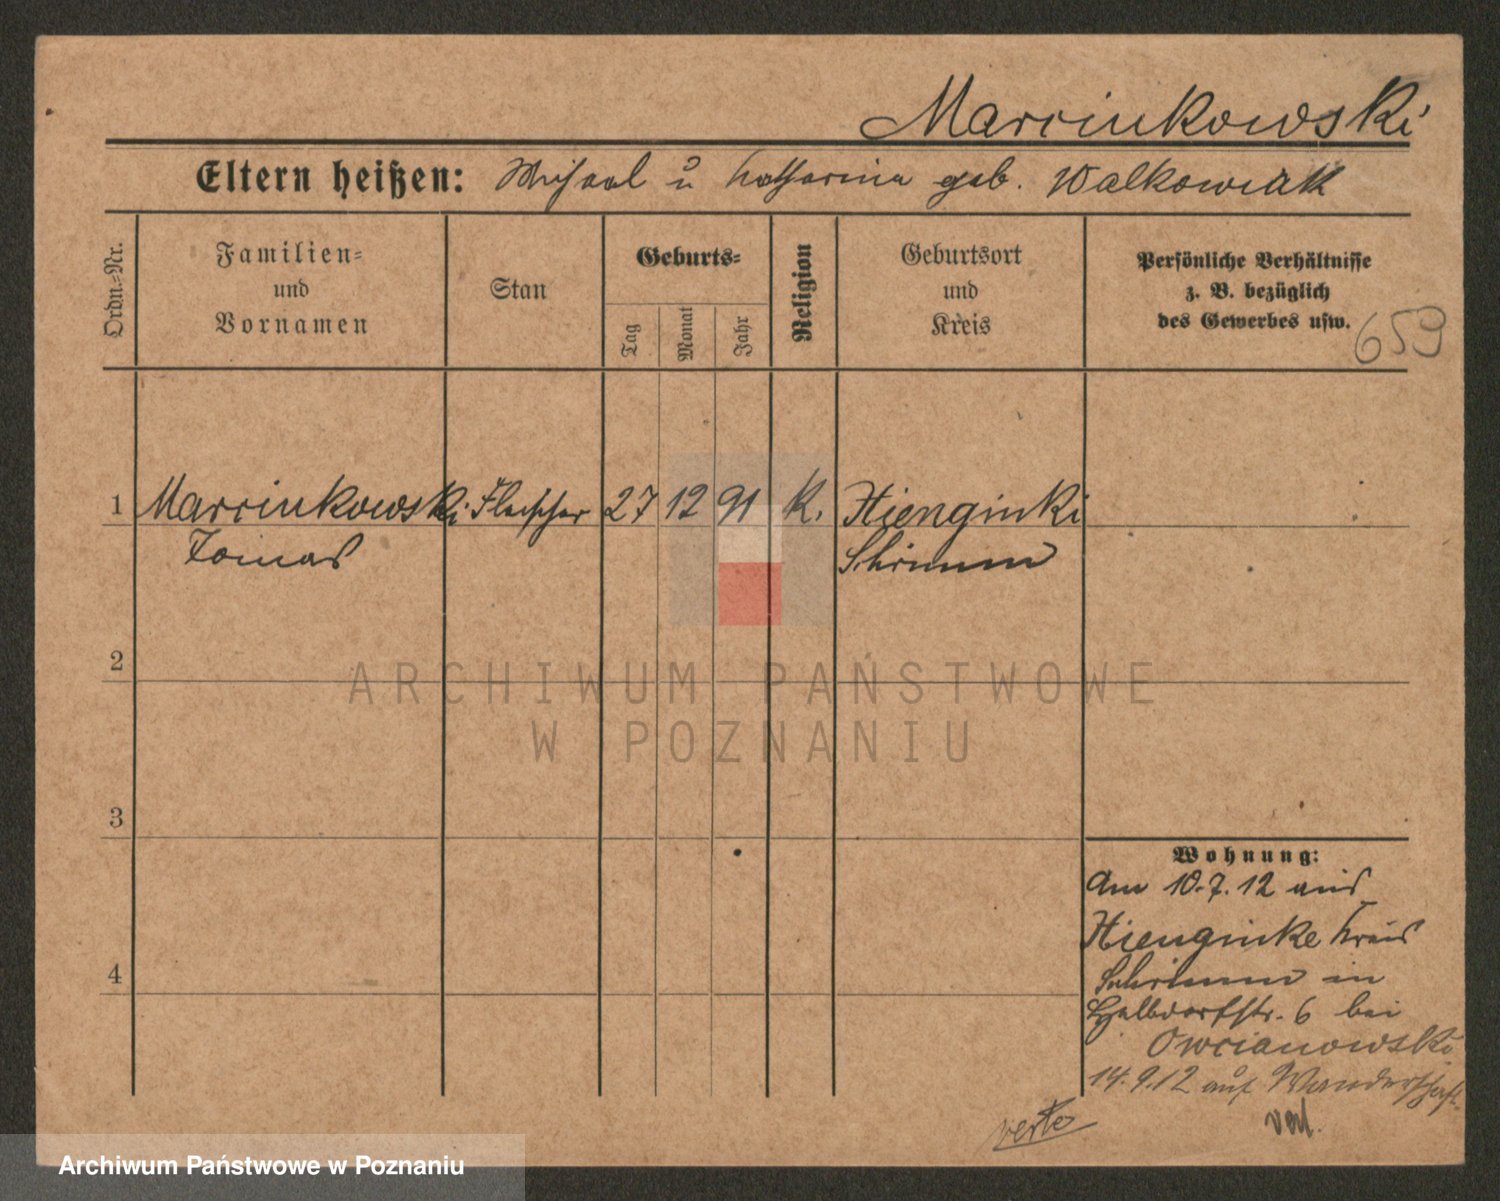 Marcinkowski
Eltern heißen: Michael u Katharina geb. Walkowiak
Ordn.-Nr.
Familien-
und
Vornamen
Stan
Geburts-
Tag
Monat
Jahr
Religion
Geburtsort
und
Kreis
Persönliche Verhältnisse
z. B. bezüglich
des Gewerbes usw.
659
1 Marcinkowski Fleischer 27 12 91 K. Hienginki
Tomas Schrimm
2
ARCHIWUM PAŃSTWOWE
W POZNANIU
3
Wohnung:
Am 10.7.12 aus
Hienginke Kreis
4
Schrimm in
Halbdorfstr. 6 bei
Owcianowski
14.9.12 auf Wanderschaft
verte
Archiwum Państwowe w Poznaniu